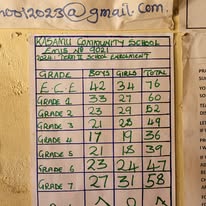 hool2023@gmail.com.
KASAMU COMMUNITY SCHOOL
EMIS Nº 9021
2024: TERM II SCHOOL ENROLMENT
GRADE BOYS GIRLS TOTAL
E.C.E 42 34 76
GRADE 1 33 27 60
GRADE 2 23 29 52
GRADE 3 21 28 49
GRADE 4 17 19 36
GRADE 5 21 18 39
GRADE 6 23 24 47
GRADE 7 27 31 58